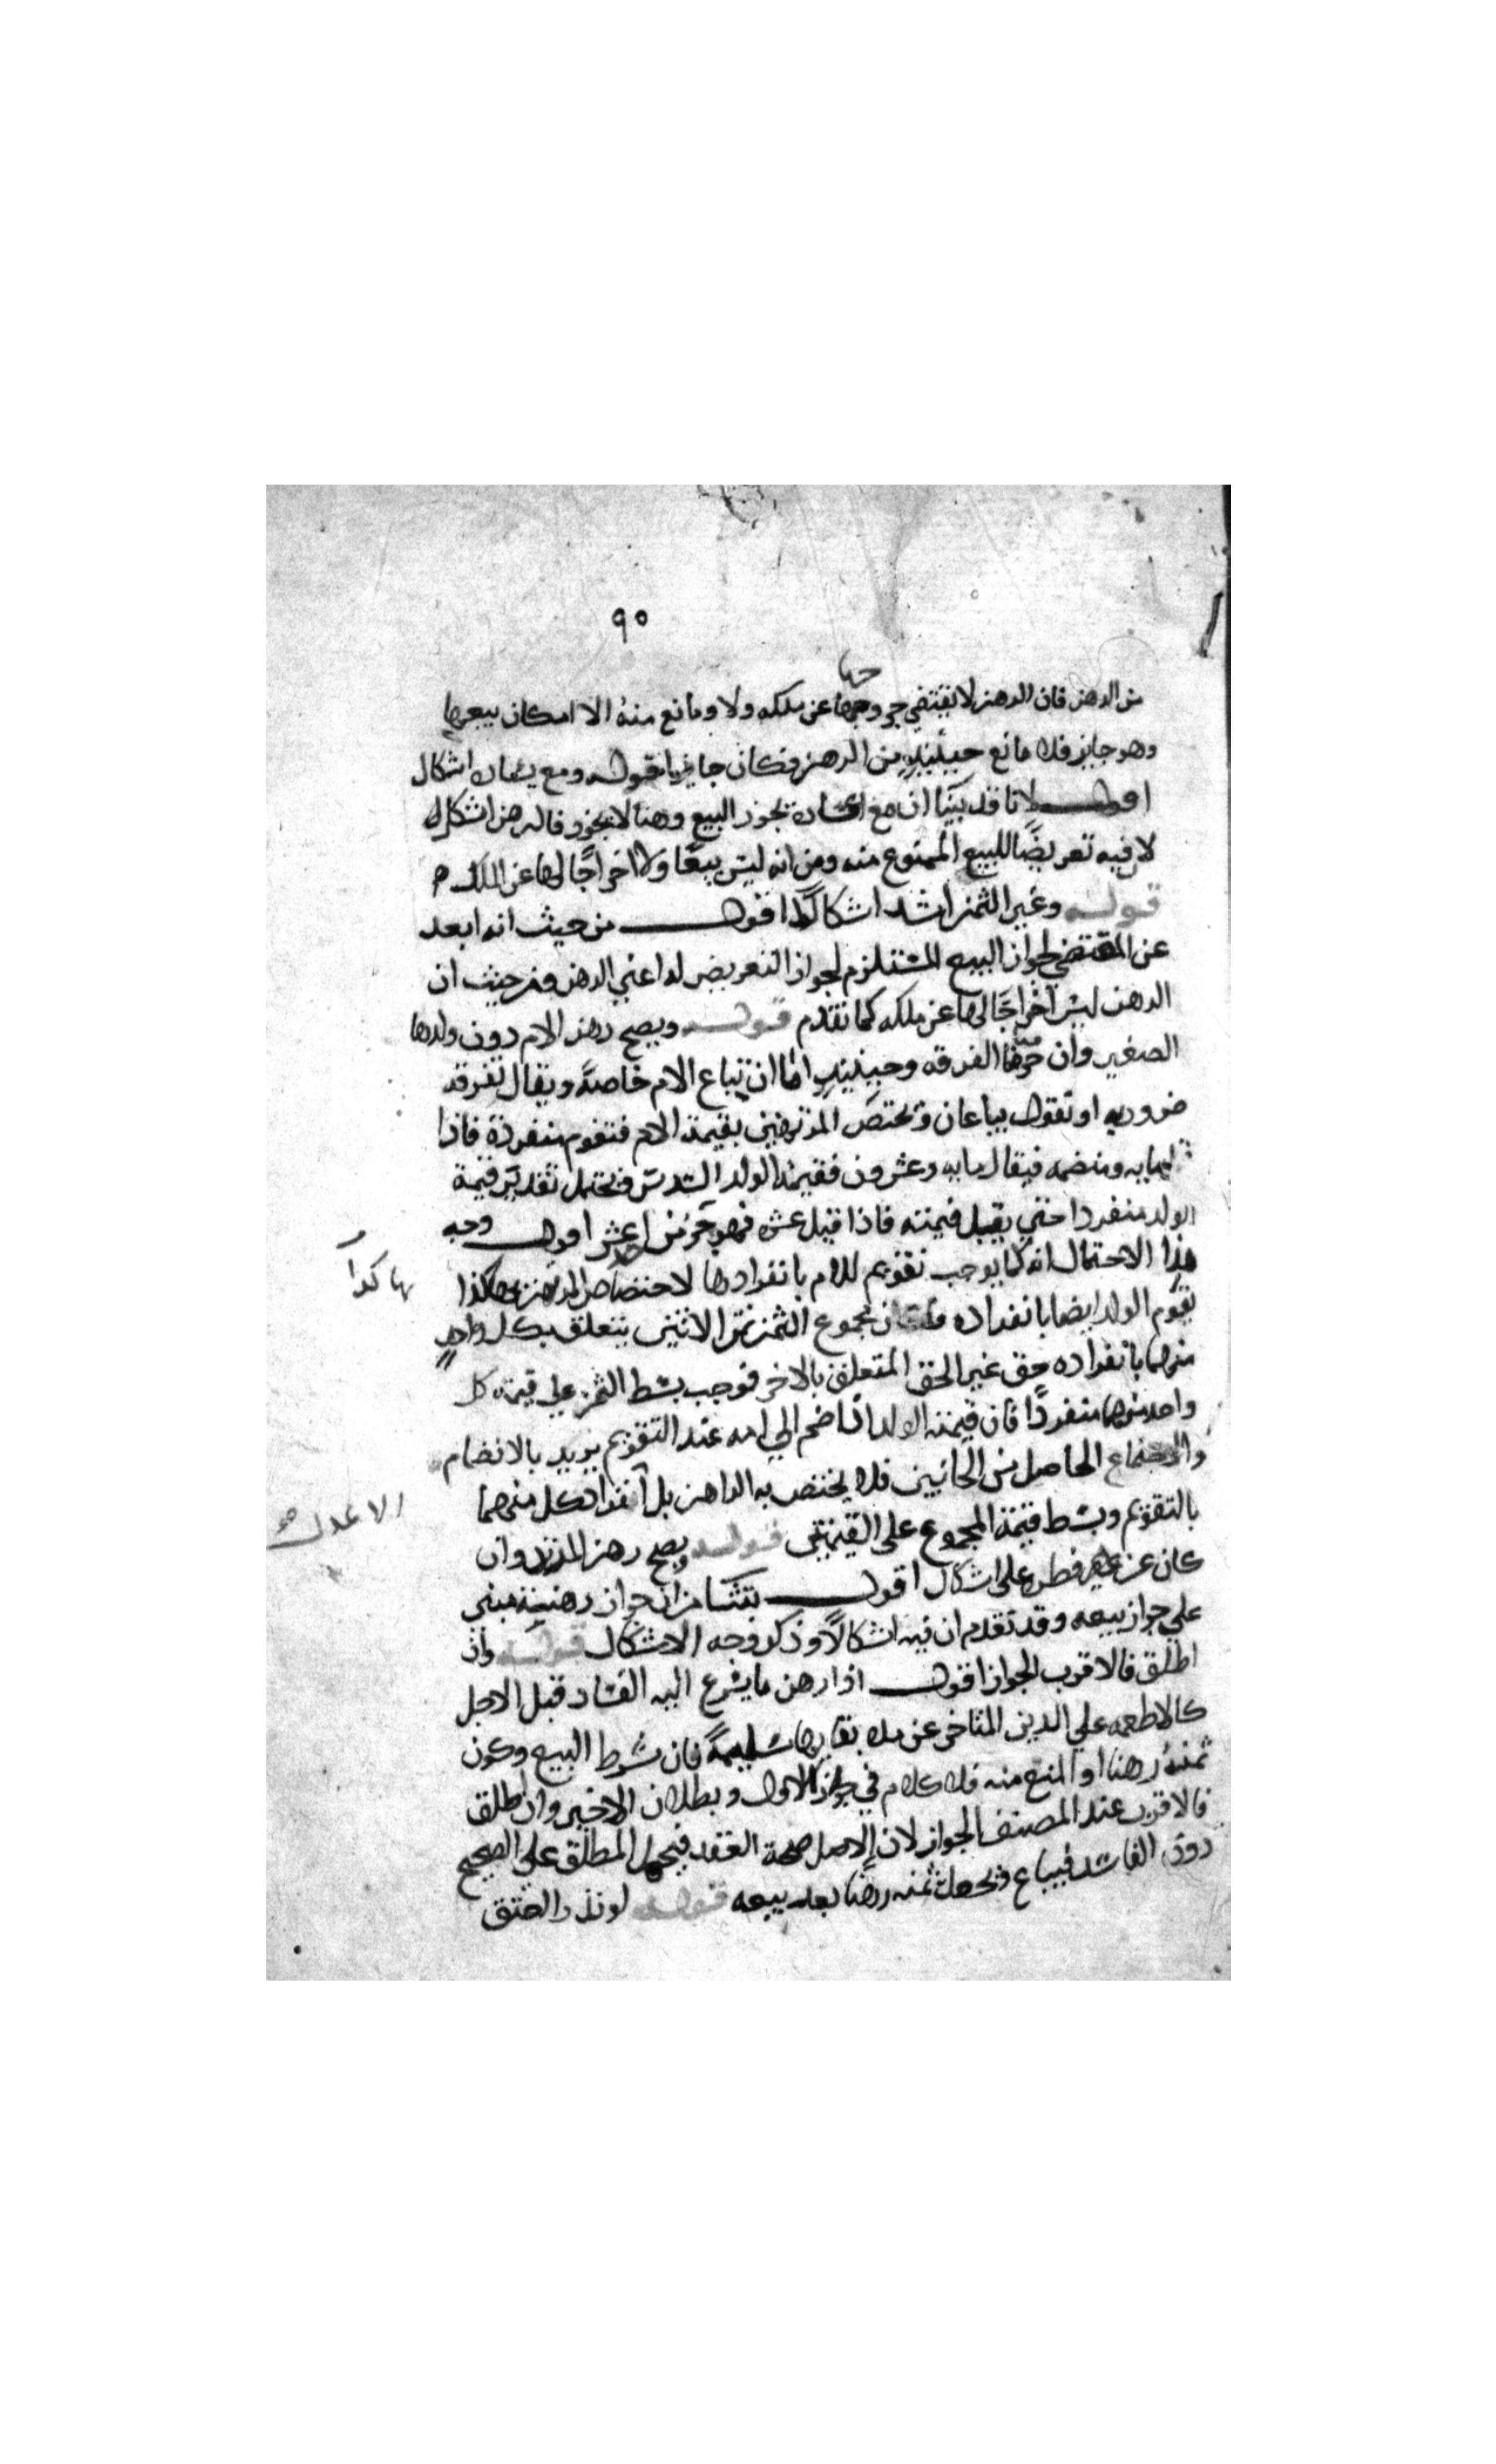 ٩٠
من الرهن فان الرهن لا يقتضي خروجها عن ملكه ولا ومانع منه الا امكان بيعها
وهو جايز فلا مانع حينئذ من الرهن فكان جايزا قوله ومع يساره اشكال
اقول لانا قد بينا ان مع اعساره يجوز البيع وهنا لا يجوز فالرهن اشكل
لا فيه تعريضا للبيع الممنوع منه ومن انه ليس بيعا ولا اخراجا لها عن الملك
قوله وغير الثمن اشد اشكالا اقول من حيث انه ابعد
عن المقتضي لجواز البيع المستلزم لجواز التعريض له اعني الرهن ومن حيث ان
الرهن ليس اخراجا لها عن ملكه كما تقدم قوله ويصح رهن الام دون ولدها
الصغير وان حرمنا الفرقه وحينئذ اما ان تباع الام خاصة ويقال تفرقه
ضروريه او نقول يباعان ويختص المرتهن بقيمة الام فتقوم منفردة فاذا
بمايه ومنضمه فيقال مايه وعشرون فقيمة الولد السدس ويحتمل تقدير قيمة
الولد منفردا حتي يقبل قيمته فاذا قيل عشره فهو جزء من احد عشر اقول وجه
هذا الاحتمال انه كما يوجب تقويم للام بانفرادها لاختصاص المرتهن بها كذا
بها كذا
يقوم الولد ايضا بانفراده مجموع الثمن ثمن الاثنين يتعلق بكل واحد
منهما بانفراده حق غير الحق المتعلق بالاخر فوجب بسط الثمن علي قيمة كل
واحد منهما منفردا فان قيمة الولد اذا ضم الي امه عند التقويم يزيد بالانضمام
والاجتماع الحاصل من الجانبين فلا يختص به الراهن بل انفراد كل منهما
الاعدل
بالتقويم وبسط قيمة المجموع على القيمتين قوله ويصح رهن المرتد وان
كان عن غير فطره على اشكال اقول ينشا من ان جواز رهنه مبني
علي جواز بيعه وقد تقدم ان فيه اشكالا وذكر وجه الاشكال قوله وان
اطلق فالاقرب الجواز اقول اذا رهن ما يسرع اليه الفساد قبل الاجل
كالاطعمه علي الدين المتاخر عن مده بقايها سليمة فان شرط البيع وكون
ثمنه رهنا او المنع منه فلا كلام في جواز الاول وبطلان الاخير وان اطلق
فالاقرب عند المصنف الجواز لان الاصل صحة العقد فيحمل المطلق علي الصحيح
دون الفاسد فيباع ويجعل ثمنه رهنا بعد بيعه قوله لو نذر العتق